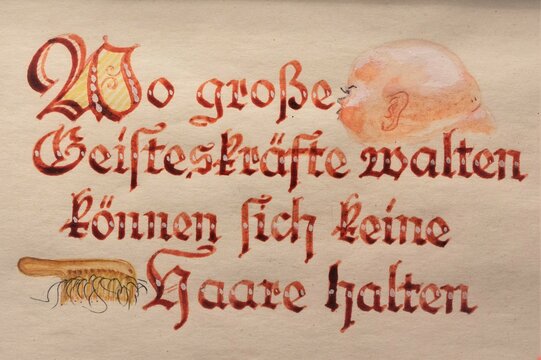 Wo große
Geisteskräfte walten
können sich keine
Haare halten